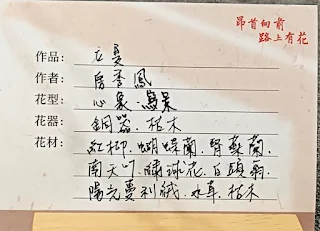 昂首向前
路上有花
作品：左蔓
作者：詹季鳳
花型：心象．盤景
花器：銅器．枯木
花材：紅柳．蝴蝶蘭．腎藥蘭．
南天竹．繡球花．白頭翁．
陽光曼利絨．水草．枯木